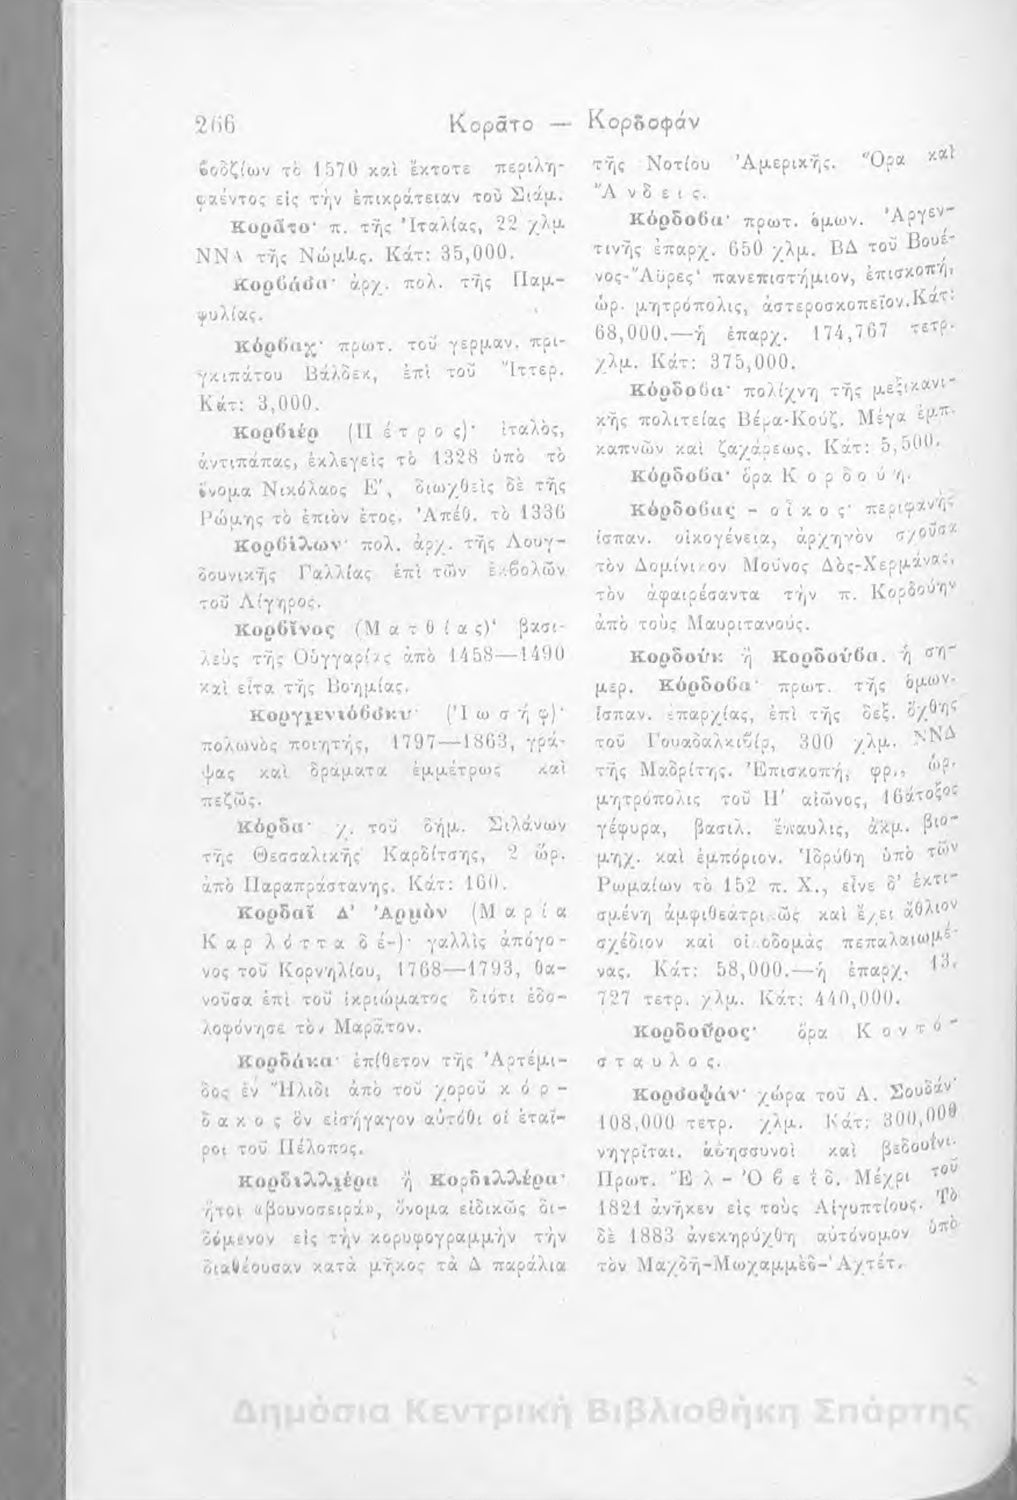 266
Κορᾶτο — Κορδοφάν
βοδζίων τὸ 1570 καὶ ἔκτοτε περιλη-
φθέντος εἰς τὴν ἐπικράτειαν τοῦ Σιάμ.
Κορᾶτο· π. τῆς Ἰταλίας, 22 χλμ
ΝΝΑ τῆς Κάτ: 35,000.
Κορβάσα· ἀρχ. πολ. τῆς Παμ-
φυλίας.
Κόρβαχ· πρωτ. τοῦ γερμαν. πρι-
γκιπάτου Βάλδεκ, ἐπὶ τοῦ Ἴττερ.
Κάτ: 3,000.
Κορβιέρ (Πέτρος)· ἰταλὸς,
ἀντιπάπας, ἐκλεγεὶς τὸ 1328 ὑπὸ τὸ
ὄνομα Νικόλαος Ε', διωχθεὶς δὲ τῆς
Ῥώμης τὸ ἐπιὸν ἔτος. Ἀπέθ. τὸ 1336
Κορβίλων· πολ. ἀρχ. τῆς Λουγ-
δουνικῆς Γαλλίας ἐπὶ τῶν ἐκβολῶν
τοῦ Λίγηρος.
Κορβῖνος (Ματθίας)· βασι-
λεὺς τῆς Οὑγγαρίας ἀπὸ 1458—1490
καὶ εἶτα τῆς Βοημίας.
(Ἰωσήφ)·
πολωνὸς ποιητής, 1797—1863, γρά-
ψας καὶ δράματα ἐμμέτρως καὶ
πεζῶς.
Κόρδα· χ. τοῦ δήμ. Σιλάνων
τῆς Θεσσαλικῆς Καρδίτσης, 2 ὥρ.
ἀπὸ Παραπράστανης. Κάτ: 160.
Κορδαῒ Δ' Ἀρμὸν (Μαρία
Καρλόττα δέ-)· γαλλὶς ἀπόγο-
νος τοῦ Κορνηλίου, 1768—1793, θα-
νοῦσα ἐπὶ τοῦ ἰκριώματος διότι ἐδο-
λοφόνησε τὸν Μαρᾶτον.
Κορδάκα· ἐπίθετον τῆς Ἀρτέμι-
δος ἐν Ἤλιδι ἀπὸ τοῦ χοροῦ κόρ-
δακος ὃν εἰσήγαγον αὐτόθι οἱ ἑταῖ-
ροι τοῦ Πέλοπος.
Κορδιλλιέρα ἢ Κορδιλλέρα·
ἤτοι «βουνοσειρά», ὄνομα εἰδικῶς δι-
δόμενον εἰς τὴν κορυφογραμμὴν τὴν
διαθέουσαν κατὰ μῆκος τὰ Δ παράλια
τῆς Νοτίου Ἀμερικῆς. Ὅρα καὶ
Ἄνδεις.
Κόρδοβα· πρωτ. ὁμων. Ἀργεν-
τινῆς ἐπαρχ. 650 χλμ. ΒΔ τοῦ Βουέ-
νος-Ἄϋρες· πανεπιστήμιον, ἐπισκοπή,
ὡρ. μητρόπολις, ἀστεροσκοπεῖον. Κάτ:
68,000.—ἡ ἐπαρχ. 174,767 τετρ.
χλμ. Κάτ: 375,000.
Κόρδοβα· πολίχνη τῆς μεξικανι-
κῆς πολιτείας Βέρα-Κρούζ. Μέγα ἐμπ.
καπνῶν καὶ ζαχάρεως. Κάτ: 5,500.
Κόρδοβα· ὅρα Κορδούη.
Κόρδοβας - οἶκος· περιφανὴς
ἱσπαν. οἰκογένεια, ἀρχηγὸν σχοῦσα
τὸν Δομίνικον Μούνος Δὸς-Χερμάνας,
τὸν ἀφαιρέσαντα τὴν π. Κορδούην
ἀπὸ τοὺς Μαυριτανούς.
Κορδοὺκ ἢ Κορδούβα. ἢ ση-
μερ. Κόρδοβα· πρωτ. τῆς ὁμων.
ἱσπαν. ἐπαρχίας, ἐπὶ τῆς δεξ. ὄχθης
τοῦ Γουαδαλκιβίρ, 300 χλμ. ΝΝΔ
τῆς Μαδρίτης. Ἐπισκοπή, φρ., ὡρ.
μητρόπολις τοῦ Η' αἰῶνος, 16άτοξος
γέφυρα, βασιλ. ἔπαυλις, ἀκμ. βιο-
μηχ. καὶ ἐμπόριον. Ἱδρύθη ὑπὸ τῶν
Ῥωμαίων τὸ 152 π. Χ., εἶνε δ' ἐκτι-
σμένη ἀμφιθεατρικῶς καὶ ἔχει ἄθλιον
σχέδιον καὶ οἰκοδομὰς πεπαλαιωμέ-
νας. Κάτ: 58,000.—ἡ ἐπαρχ. 13,
727 τετρ. χλμ. Κάτ: 440,000.
Κορδοῦρος· ὅρα Κοντό-
σταυλος.
Κορδοφάν· χώρα τοῦ Α. Σουδάν·
108,000 τετρ. χλμ. Κάτ: 300,000
νηγρῖται. ἀβησσυνοὶ καὶ βεδουῖνι.
Πρωτ. Ἒλ-Ὀβεΐδ. Μέχρι τοῦ
1821 ἀνῆκεν εἰς τοὺς Αἰγυπτίους. Τὸ
δὲ 1883 ἀνεκηρύχθη αὐτόνομον ὑπὸ
τὸν Μαχδῆ-Μωχαμμὲδ-Ἀχτέτ.
Δημόσια Κεντρική Βιβλιοθήκη Σπάρτης